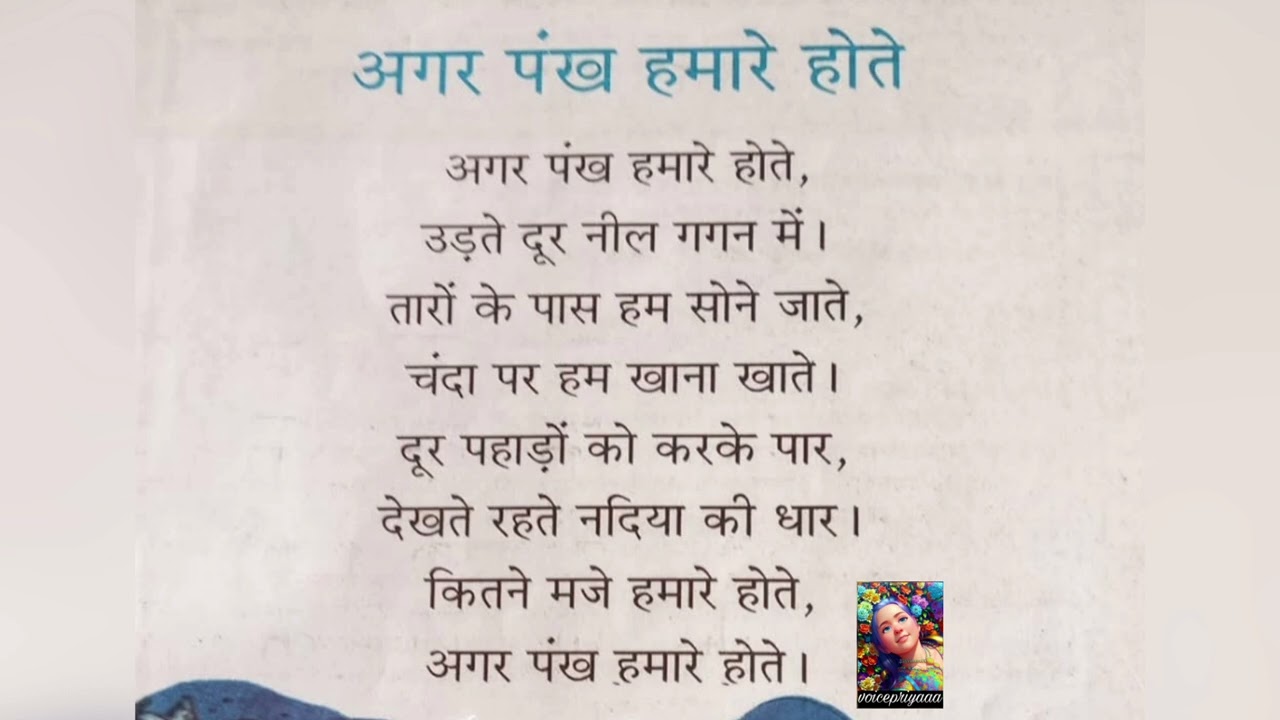 अगर पंख हमारे होते
अगर पंख हमारे होते,
उड़ते दूर नील गगन में।
तारों के पास हम सोने जाते,
चंदा पर हम खाना खाते।
दूर पहाड़ों को करके पार,
देखते रहते नदिया की धार।
कितने मजे हमारे होते,
अगर पंख हमारे होते।
voicepriyaaa